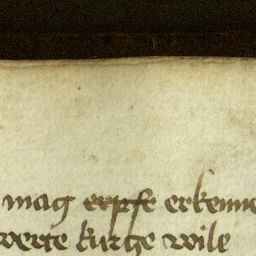 mag erpfe erkenne
werte kurtze wile